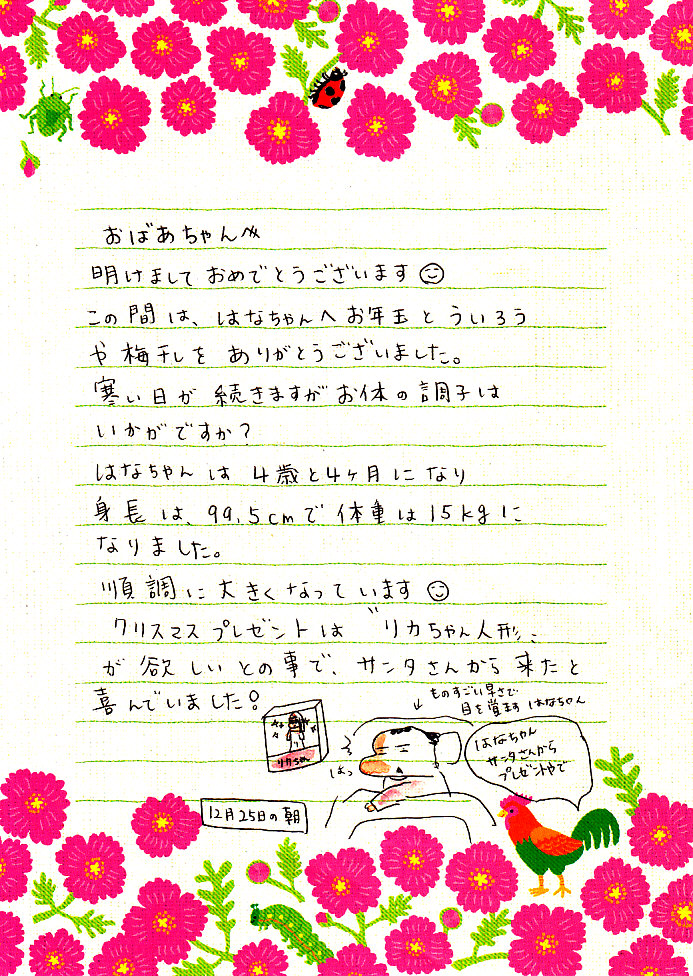 おばあちゃんへ
明けましておめでとうございます
この間は、はなちゃんへお年玉とういろう
や梅干しをありがとうございました。
寒い日が続きますがお体の調子は
いかがですか？
はなちゃんは4歳と4ヶ月になり
身長は、99.5cmで体重は15kgに
なりました。
順調に大きくなっています
クリスマスプレゼントは〝リカちゃん人形〟
が欲しいとの事で、サンタさんから来たと
喜んでいました!
ものすごい早さで
目を覚ますはなちゃん
リカちゃん
はっ
はなちゃん
サンタさんから
プレゼントやで
12月25日の朝